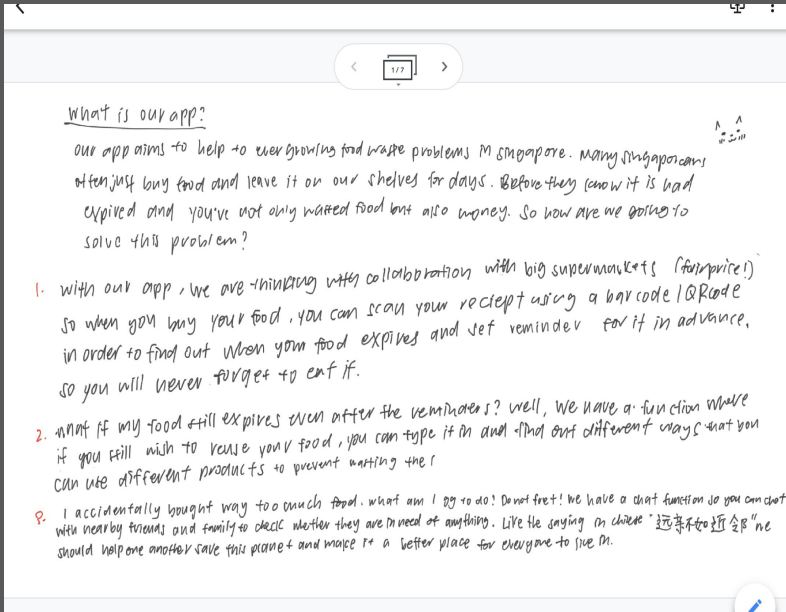 1/7
What is our app?
our app aims to help to ever growing food waste problems in singapore. Many singaporeans
often just buy food and leave it on our shelves for days. Before they know it is had
expired and you've not only wasted food but also money. So how are we going to
solve this problem?
1. With our app, we are thinking with collabboration with big supermarkets (fairprice!)
so when you buy your food, you can scan your reciept using a barcode / QR code
in order to find out when your food expires and set reminder for it in advance,
so you will never forget to eat it.
2. What if my food still expires even after the reminders? well, we have a function where
if you still wish to reuse your food, you can type it in and find out different ways that you
can use different products to prevent wasting the
I accidentally bought way too much food. what am I to do? Do not fret! we have a chat function so you can chat
with nearby friends and family to check whether they are in need of anything. Like the saying in chinese "远亲不如近邻" we
should help one another save this planet and make it a better place for everyone to live in.